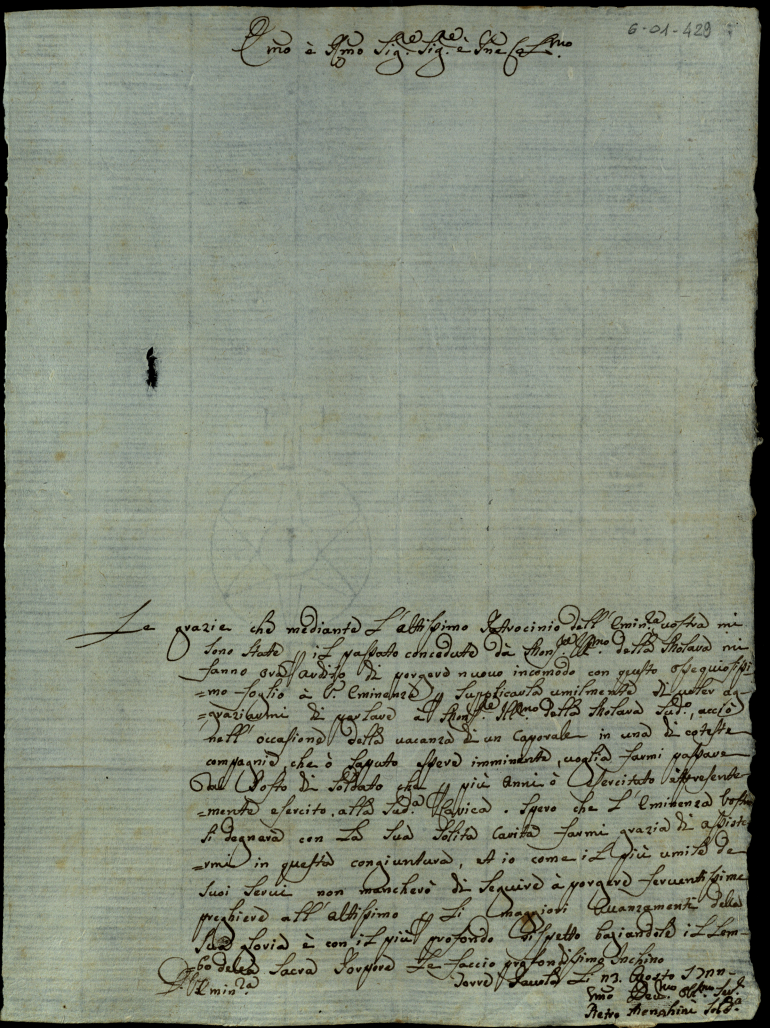 6-01-429
Emo è Rmo Sig.re Sig.re è Pne Col.mo
Le grazie che mediante L'altissimo Patrocinio dell'Emin.za vostra mi
sono state p il passato concedute dà Mons.re Ill.mo della Molara mi
fanno ora ardito di porgere nuouo incomodo con questo ossequiosissi
=mo foglio à V. Eminenza p Supplicarla umilmente di uoler de
=gniarmi di parlare à Mons.re Ill.mo della Molara Sud.o, acciò
nell'occasione della vacanza di un Caporale in una di coteste
compagnie, che ò Saputo essere imminente, uoglia farmi passare
dal Posto di Soldato che p più Anni ò esercitato è presente
=mente esercito, alla Sud.a Carica. Spero che L'Eminenza Vostra
Si degnerà con La Sua Solita Carità farmi grazia di assiste
=rmi in questa congiuntura, et io come il più umile de
Suoi Serui non mancherò di Seguire à porgere feruentissime
preghiere all'altissimo p Li maggiori Auanzamenti della
Sua gloria è con il più profondo rispetto baciandole il Lem=
bo della Sacra Porpora Le faccio profondissimo Inchino
Emin.za Li Agosto
Umo Deu.mo Obl.mo Ser.e
Pietro Sold.a